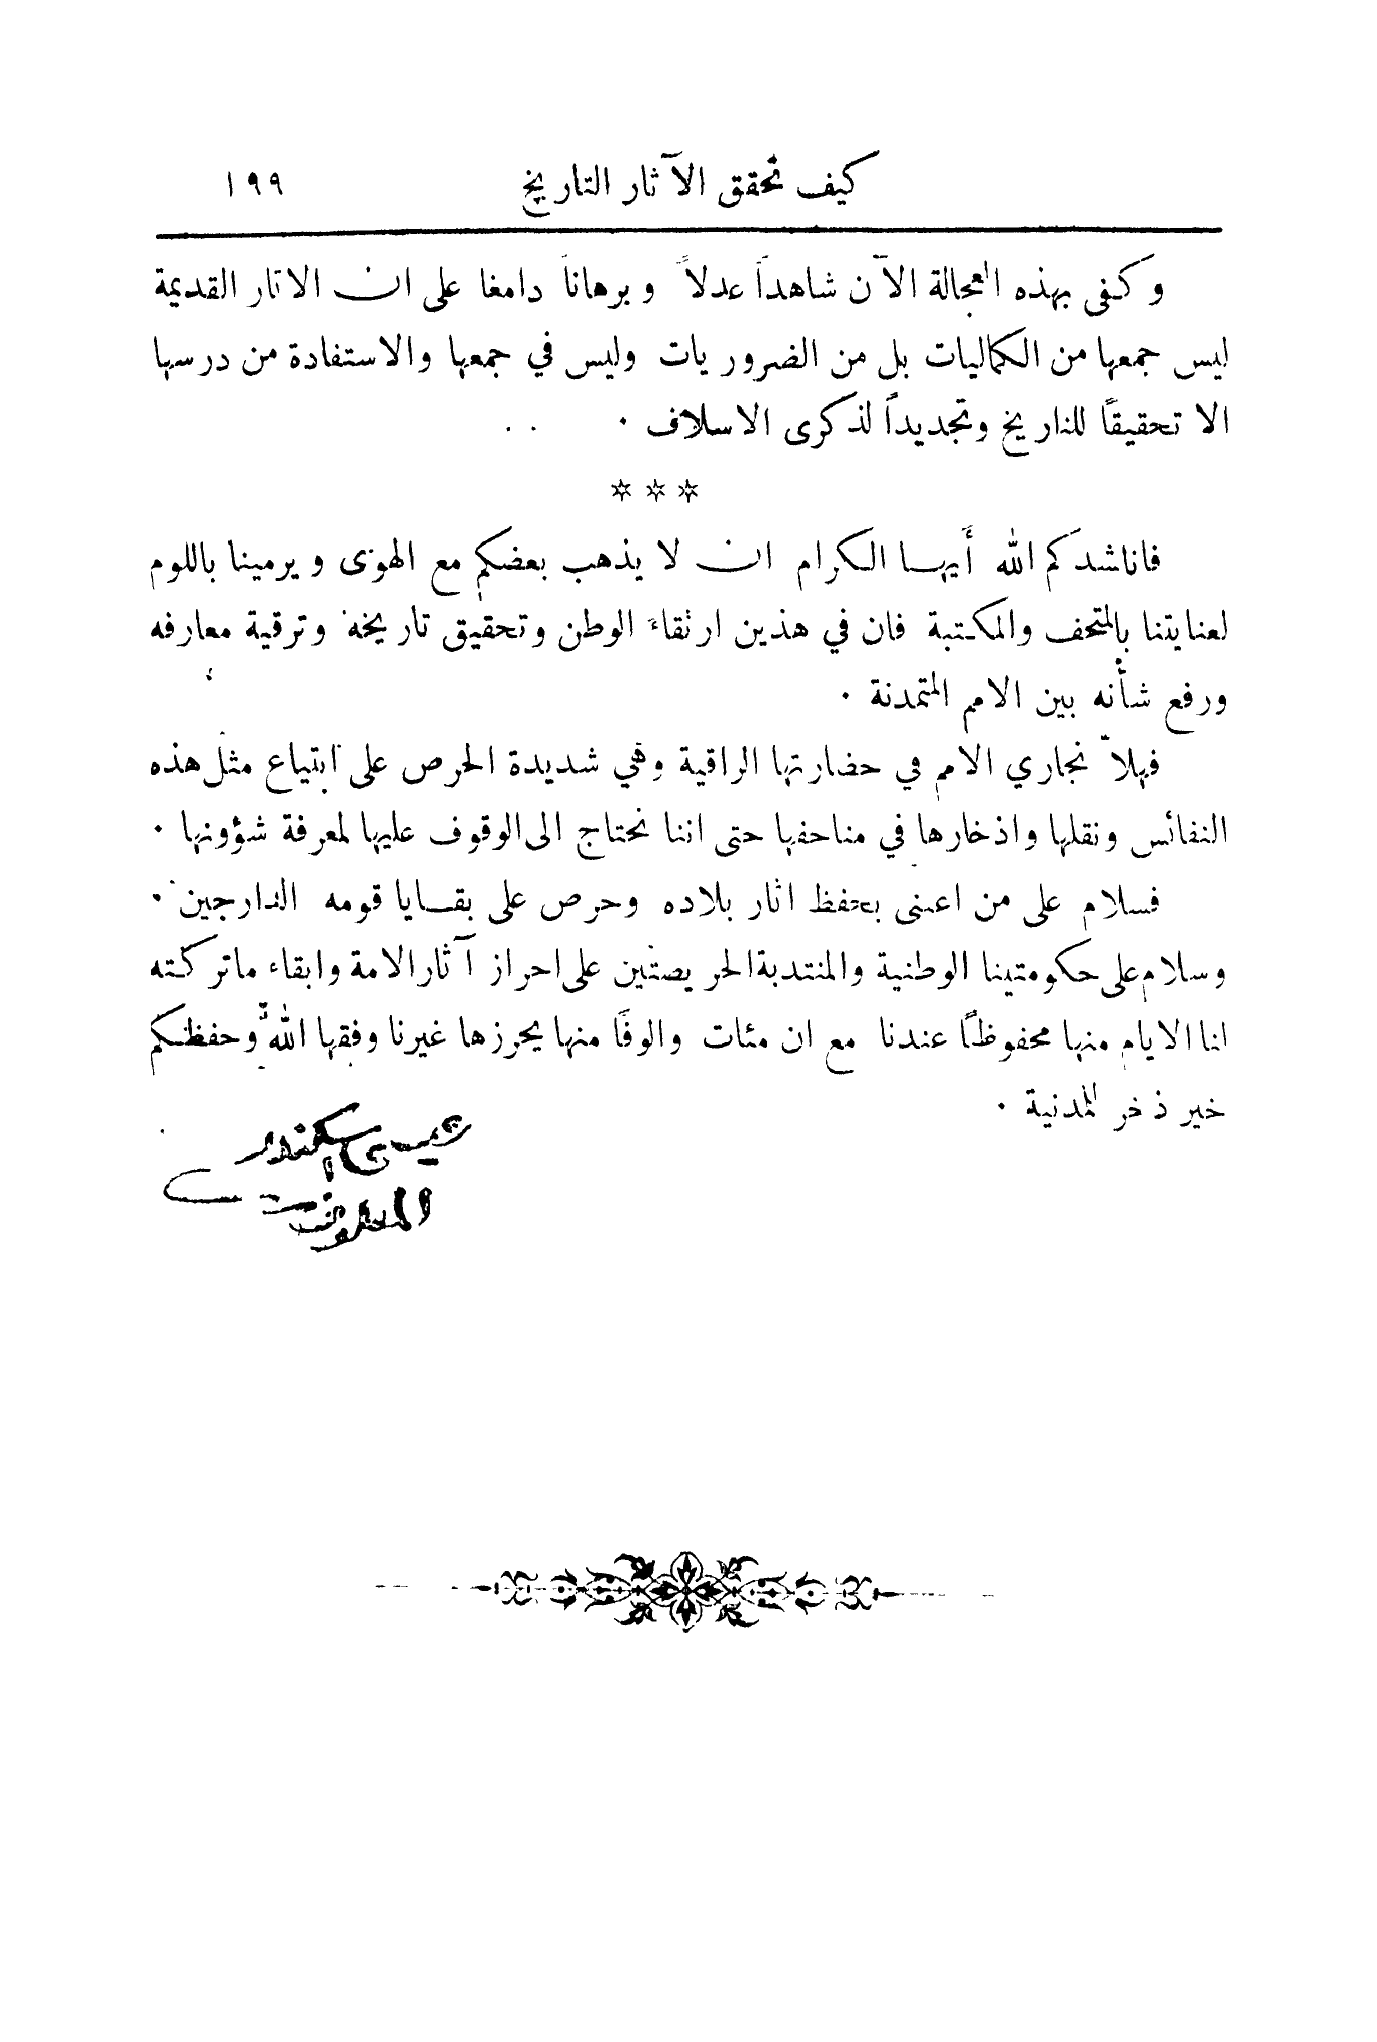 كيف تحقق الآثار التاريخ ١٩٩
وكفى بهذه العجالة الآن شاهداً عدلاً وبرهاناً دامغا على ان الاثار القديمة
ليس جمعها من الكماليات بل من الضروريات وليس في جمعها والاستفادة من درسها
الا تحقيقًا للتاريخ وتجديداً لذكرى الاسلاف ٠
***
فاناشدكم الله أيها الكرام ان لا يذهب بعضكم مع الهوى ويرمينا باللوم
لعنايتنا بالمتحف والمكتبة فان في هذين ارتقاءَ الوطن وتحقيق تاريخه وترقية معارفه
ورفع شأنه بين الامم المتمدنة ٠
فهلاّ نجاري الامم في حضارتها الراقية وهي شديدة الحرص على ابتياع مثل هذه
النفائس ونقلها واذخارها في متاحفها حتى اننا نحتاج الى الوقوف عليها لمعرفة شؤونها ٠
فسلام على من اعتنى بحفظ اثار بلاده وحرص على بقايا قومه الدارجين ٠
وسلام على حكومتينا الوطنية والمنتدبة الحريصتين على احراز آثار الامة وابقاء ما تركته
لنا الايام منها محفوظًا عندنا مع ان مئات والوفًا منها يحرزها غيرنا وفقها اللهُ وحفظكم
خير ذخر للمدنية ٠
عيسى اسكندر
المعلوف